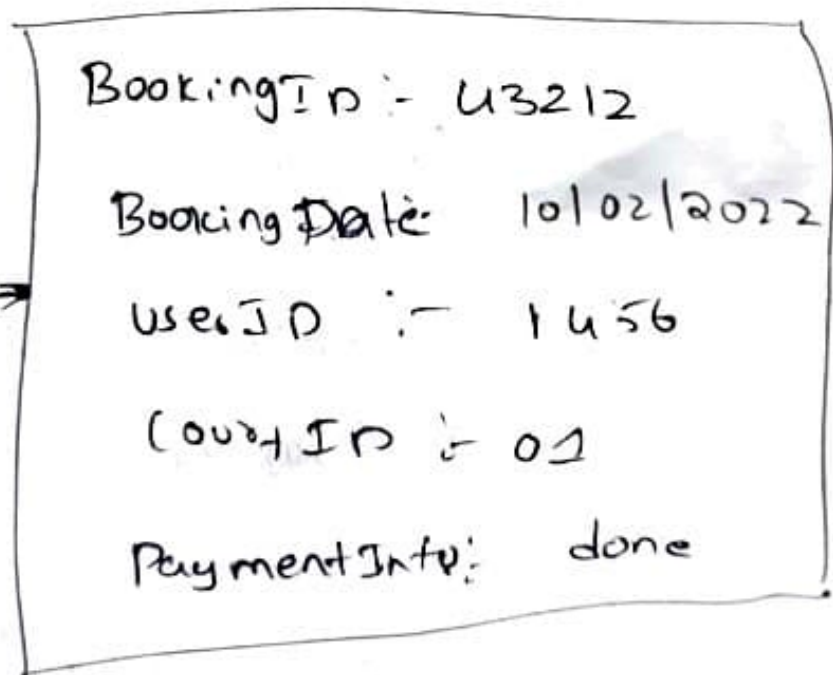 BookingID :- 43212
Boocing Date: 10/02/2022
userID :- 1456
CourtID :- 01
PaymentInfo: done